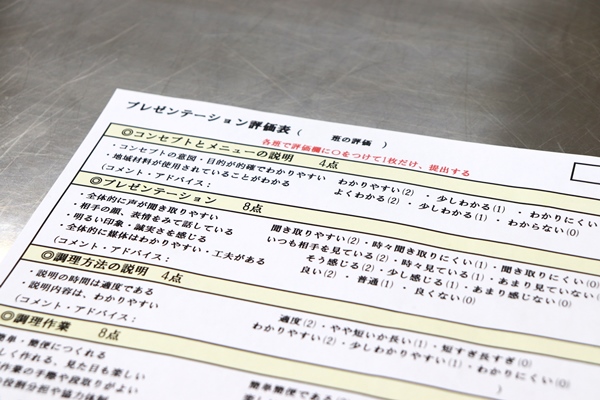 プレゼンテーション評価表（　　班の評価　）
各班で評価欄に○をつけて1枚だけ、提出する
◎コンセプトとメニューの説明　4点
・コンセプトの意図・目的が的確でわかりやすい　わかりやすい(2)・少しわかる(1)・わかりにくい
・地域材料が使用されていることがわかる　よくわかる(2)・少しわかる(1)・わからない(0)
（コメント・アドバイス：
◎プレゼンテーション　8点
・全体的に声が聞き取りやすい　聞き取りやすい(2)・時々聞き取りにくい(1)・聞き取りにくい(0)
・相手の顔、表情をみて話している　いつも相手を見ている(2)・時々見ている(1)・あまり見ていない(0)
・明るい印象・誠実さを感じる　そう感じる(2)・少し感じる(1)・あまり感じない(0)
・全体的に媒体はわかりやすい・工夫がある　良い(2)・普通(1)・良くない(0)
（コメント・アドバイス：
◎調理方法の説明　4点
・説明の時間は適度である　適度(2)・やや短いか長い(1)・短すぎ長すぎ(0)
・説明内容は、わかりやすい　わかりやすい(2)・少しわかりやすい(1)・わかりにくい(0)
（コメント・アドバイス：　）
◎調理作業　8点
簡単・簡便につくれる　簡単簡便である
しく作れる、見た目も楽しい
作業の手際や段取りがよい
役割分担や協力体制